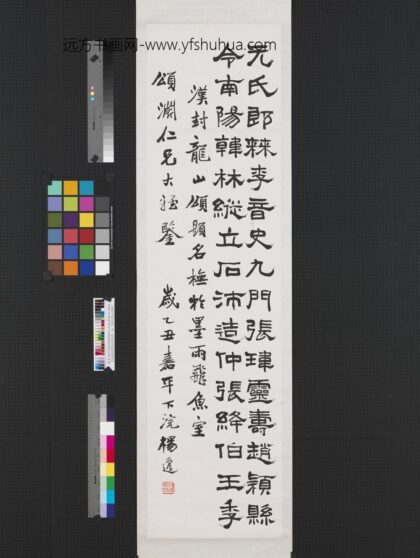 远方书画网-www.yfshuhua.com
元氏郎棘李音史九門張瑋靈壽趙穎縣
令南陽韓林縱立石沛造仲張絳伯王季
漢封龍山頌題名橅於墨雨飛魚室
頌淵仁兄大雅鑒 歲乙丑嘉平下浣楊逸